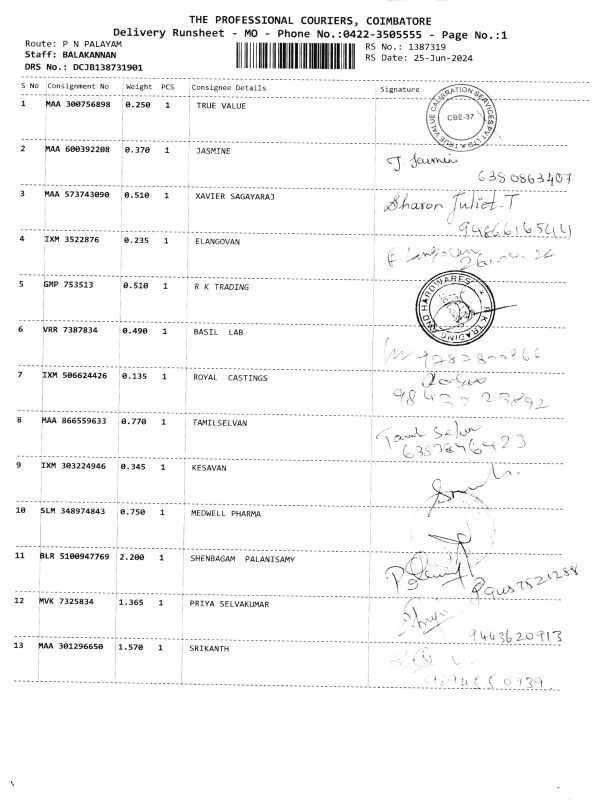 THE PROFESSIONAL COURIERS, COIMBATORE
Delivery Runsheet - MO - Phone No.:0422-3505555 - Page No.:1
Route: P N PALAYAM
RS No.: 1387319
Staff: BALAKANNAN
RS Date: 25-Jun-2024
DRS No.: DCJB138731901
S No Consignment No Weight PCS Consignee Details Signature
1 MAA 300756898 0.250 1 TRUE VALUE
TRUE VALUE CALIBRATION SERVICES PVT LTD
CBE-37
2 MAA 600392208 0.370 1 JASMINE
J. Jasmin
6380863407
3 MAA 573743090 0.510 1 XAVIER SAGAYARAJ
Sharon Juliet.T
9486616544
4 IXM 3522876 0.235 1 ELANGOVAN
Elangovan
5 GMP 753513 0.510 1 R K TRADING
R K TRADING AND HARDWARES
6 VRR 7387834 0.490 1 BASIL LAB
7 IXM 506624426 0.135 1 ROYAL CASTINGS
8 MAA 866559633 0.770 1 TAMILSELVAN
Tamil Selva
9 IXM 303224946 0.345 1 KESAVAN
10 SLM 348974843 0.750 1 MEDWELL PHARMA
11 BLR 5100947769 2.200 1 SHENBAGAM PALANISAMY
12 MVK 7325834 1.365 1 PRIYA SELVAKUMAR
9443620913
13 MAA 301296650 1.570 1 SRIKANTH